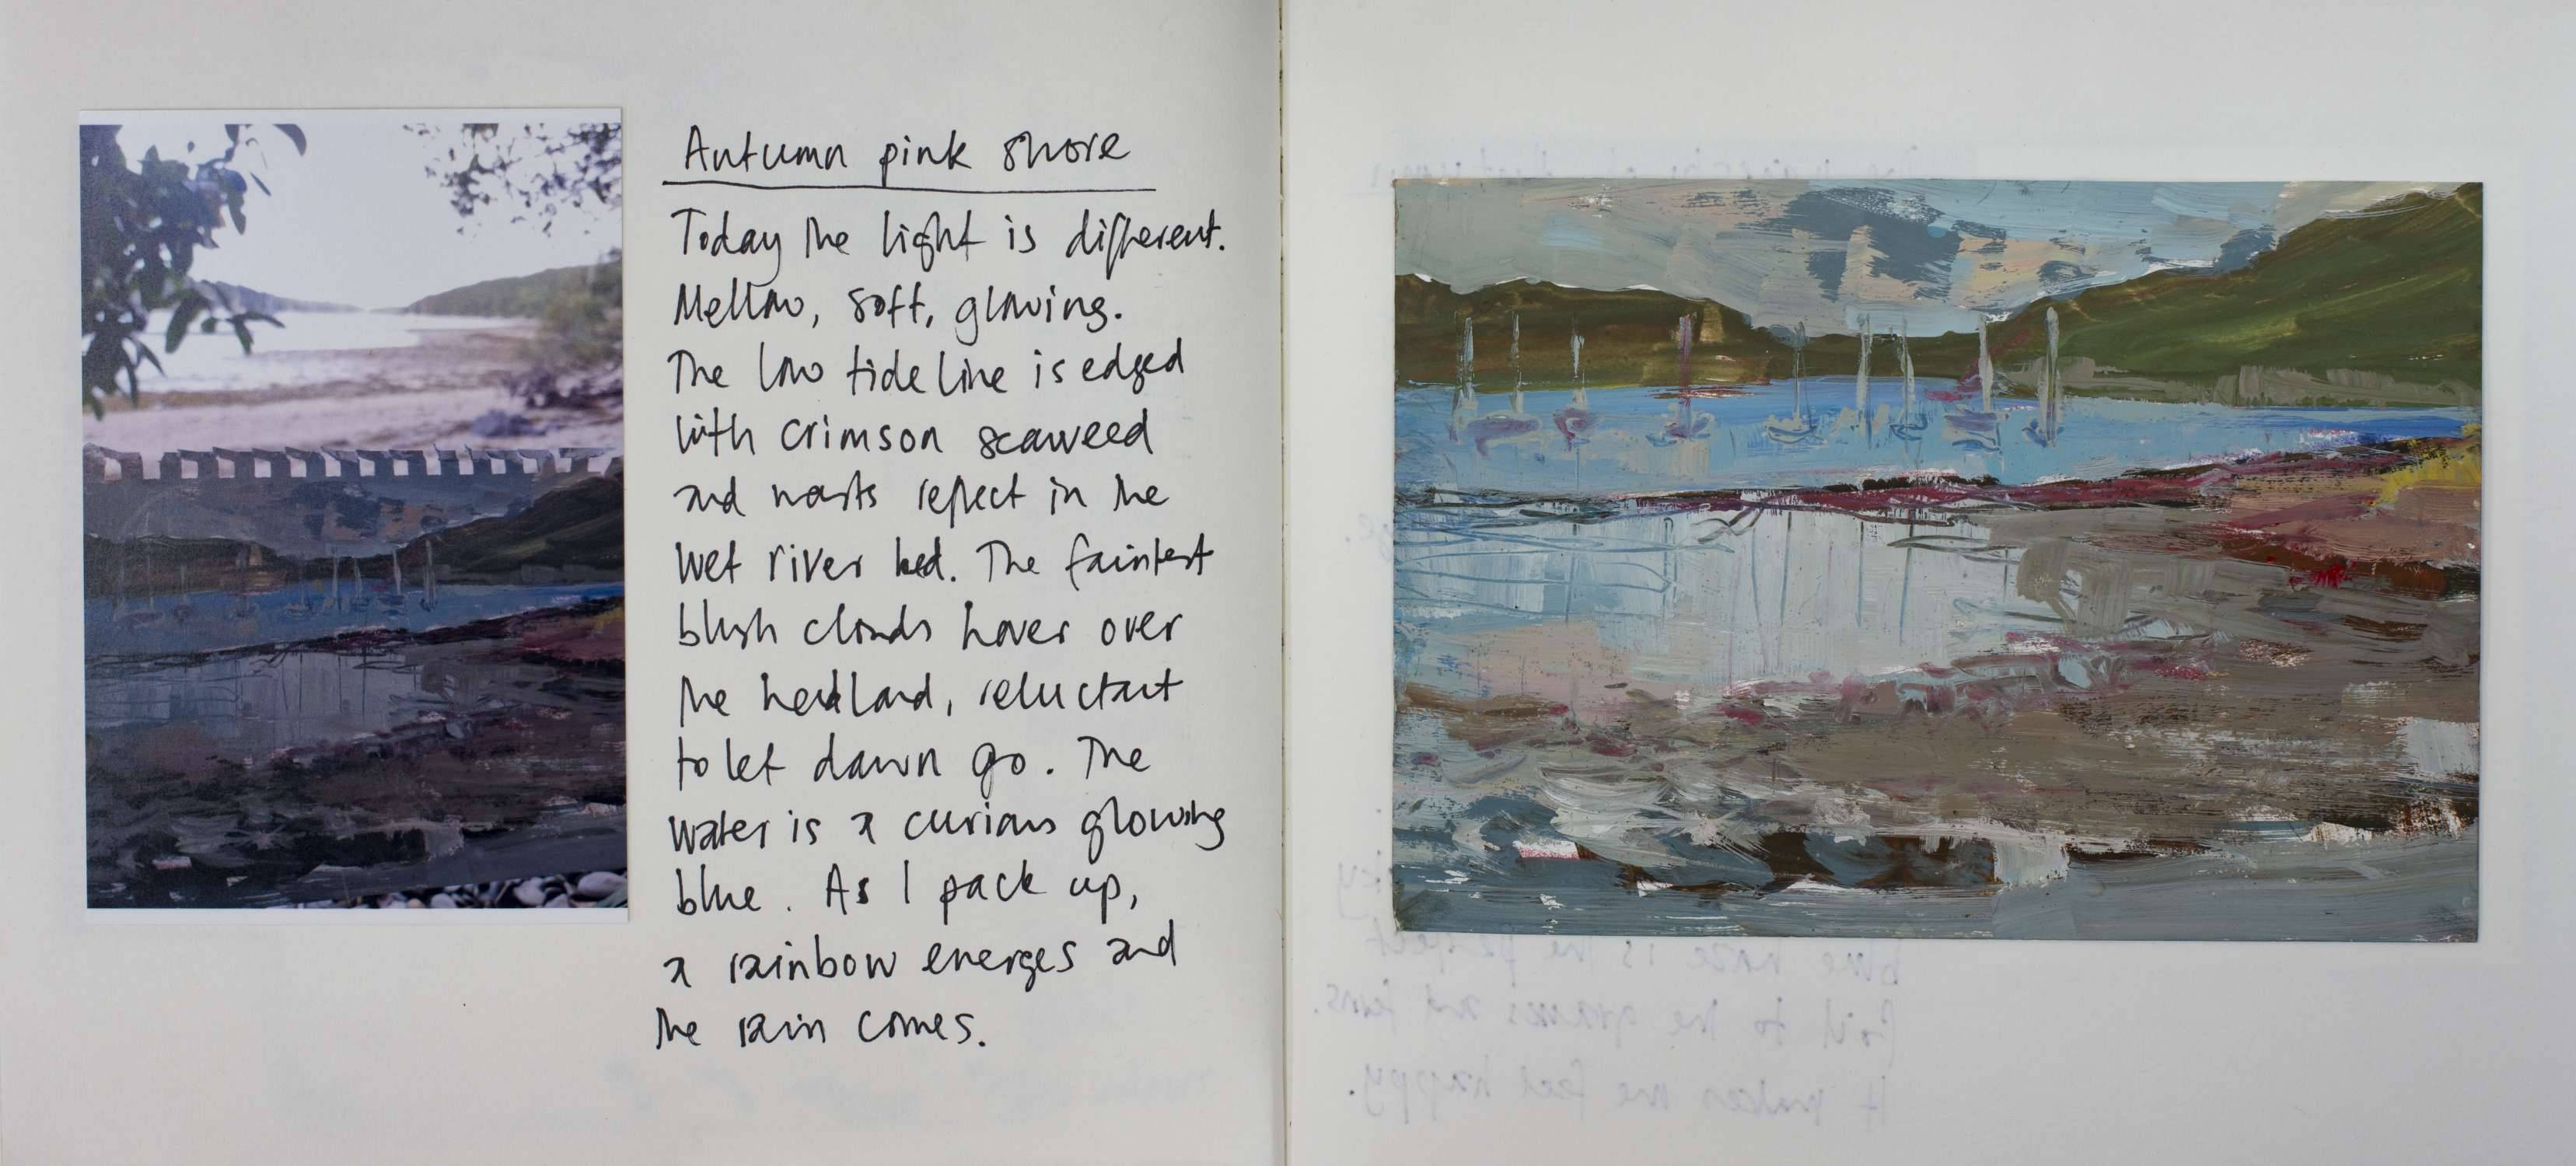 Autumn pink shore
Today the light is different.
Mellow, soft, glowing.
The low tide line is edged
with crimson seaweed
and masts reflect in the
wet river bed. The faintest
blush clouds hover over
the headland, reluctant
to let dawn go. The
water is a curious glowing
blue. As I pack up,
a rainbow emerges and
the rain comes.
blue haze is the perfect
foil to the
It makes me feel happy.